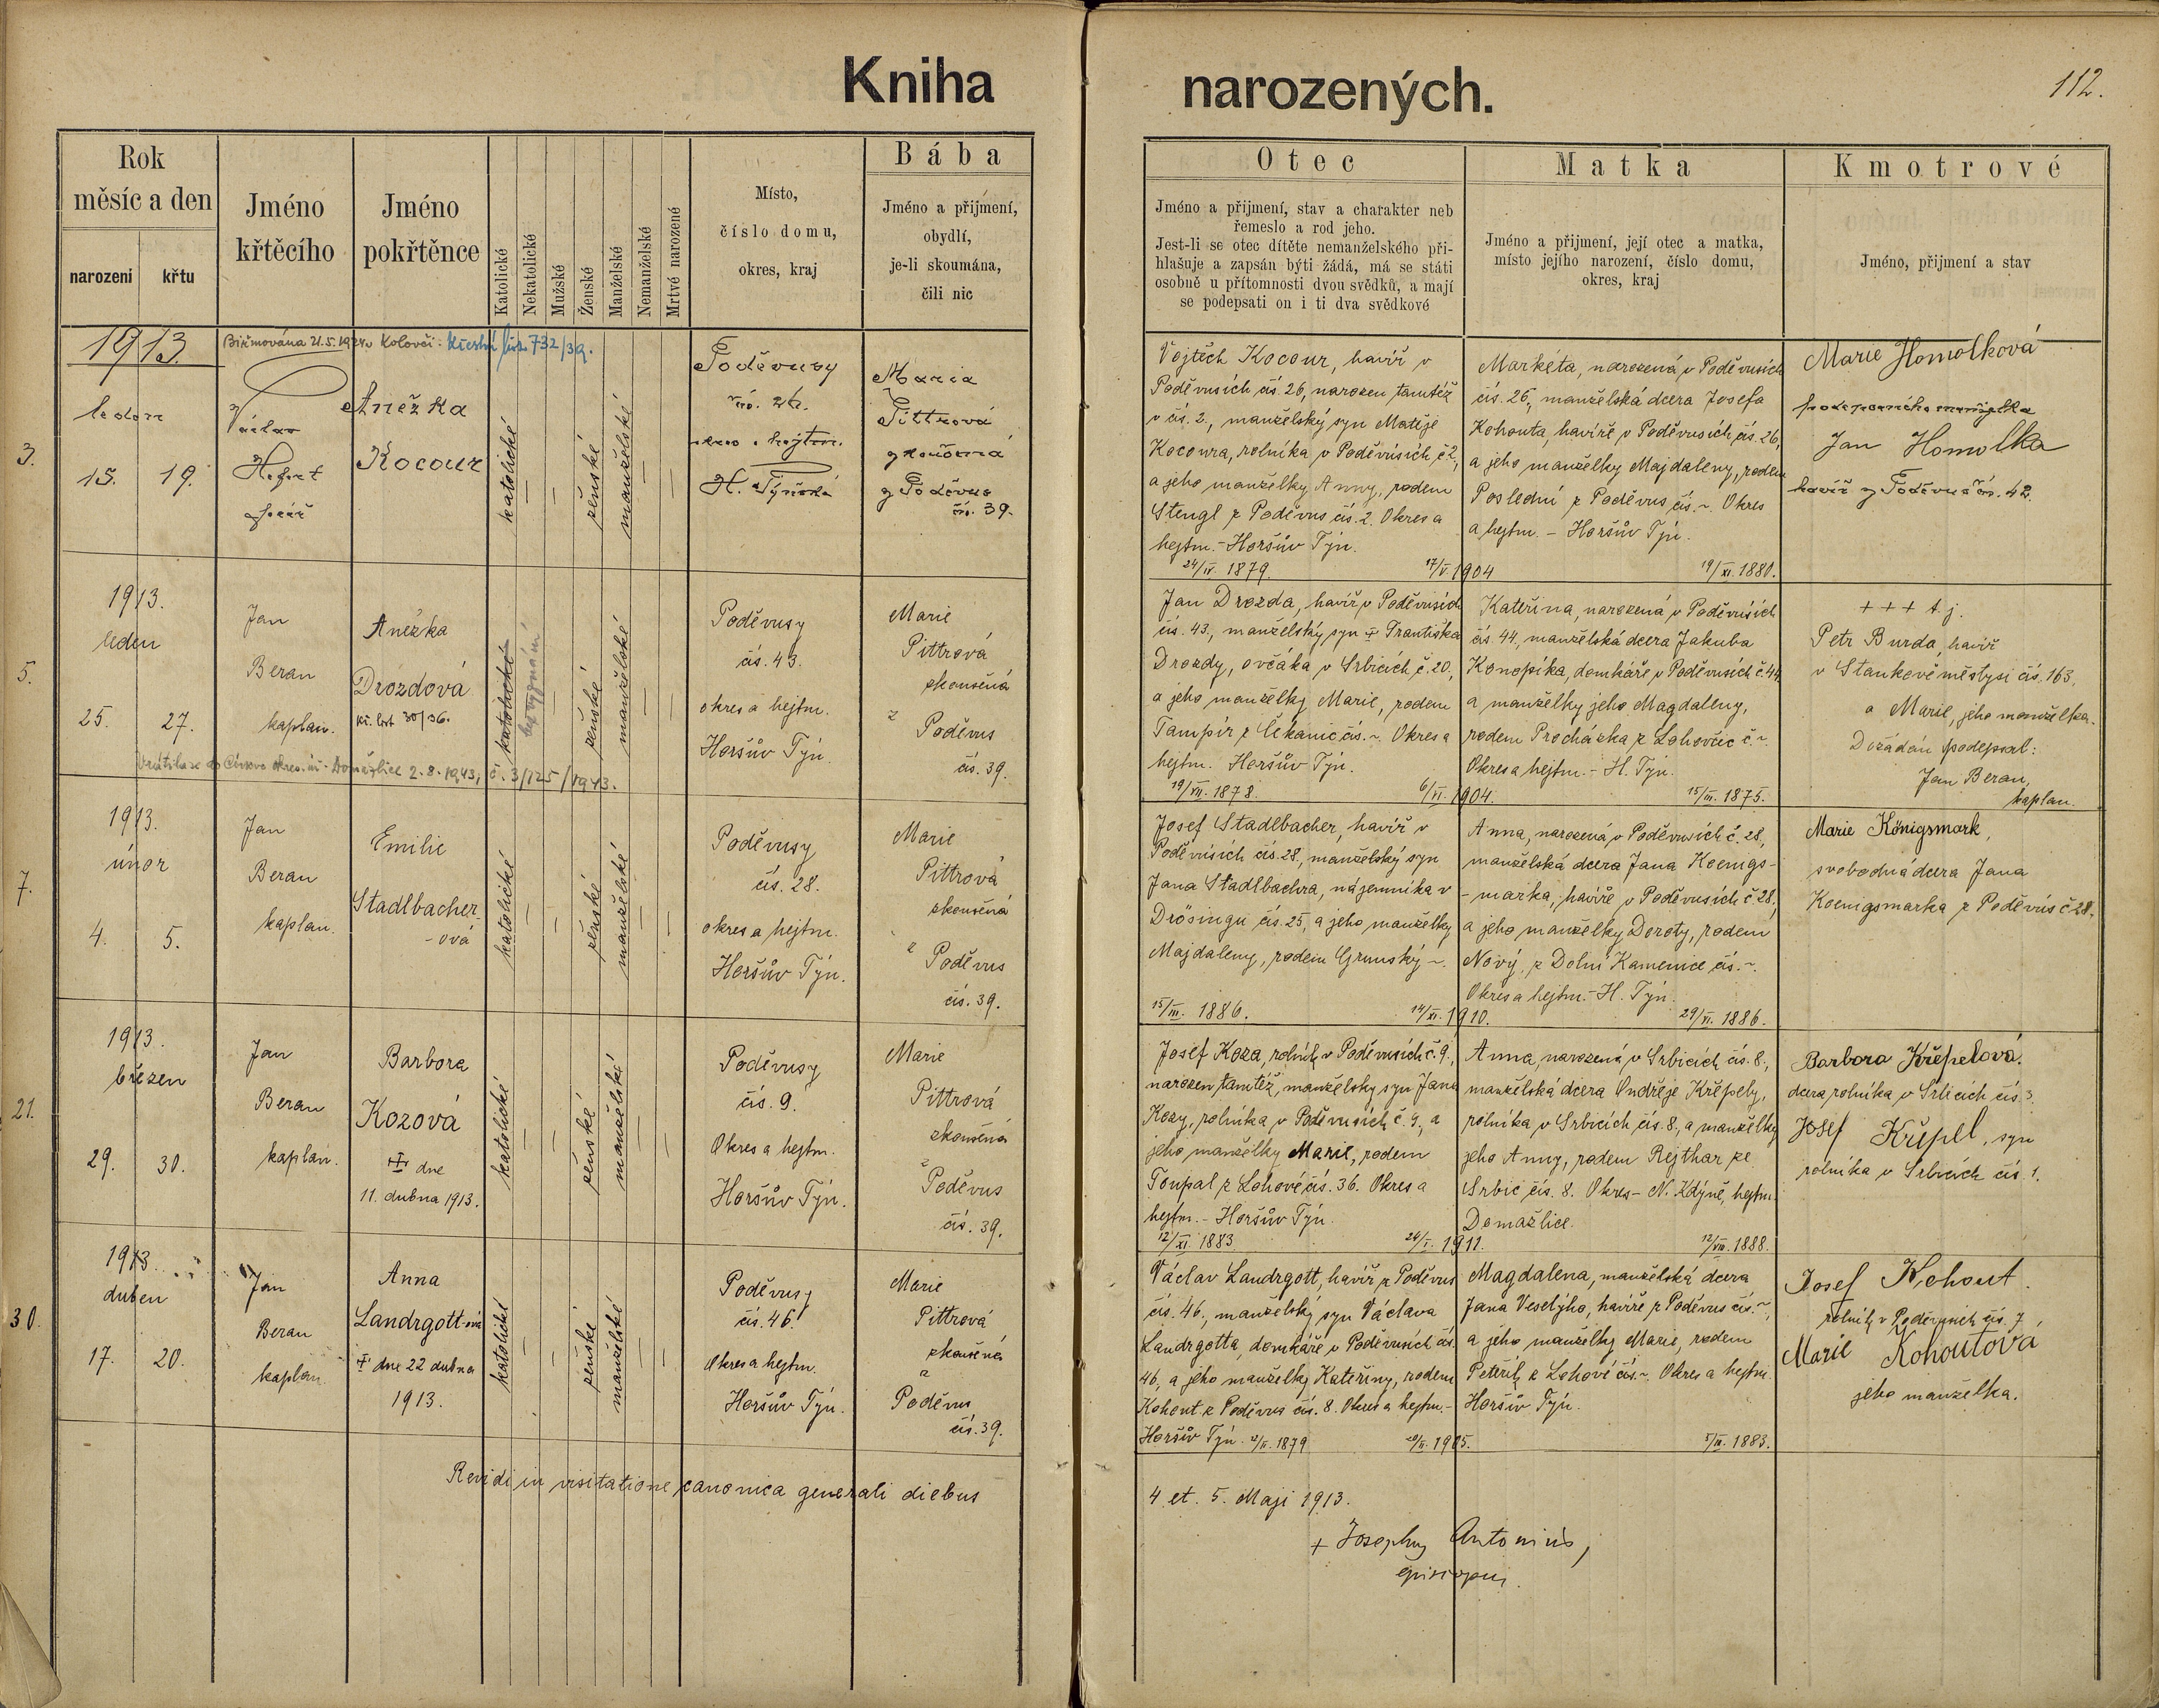 Kniha
narozených.
112.
Rok
měsíc a den
narození
křtu
Jméno
křtěcího
Jméno
pokřtěnce
Katolické
Nekatolické
Mužské
Ženské
Manželské
Nemanželské
Mrtvé narozené
Místo,
číslo domu,
okres, kraj
Bába
Jméno a přijmení,
obydlí,
je-li skoumána,
čili nic
Otec
Jméno a přijmení, stav a charakter neb
řemeslo a rod jeho.
Jest-li se otec dítěte nemanželského při-
hlašuje a zapsán býti žádá, má se státi
osobně u přítomnosti dvou svědků, a mají
se podepsati on i ti dva svědkové
Matka
Jméno a přijmení, její otec a matka,
místo jejího narození, číslo domu,
okres, kraj
Kmotrové
Jméno, přijmení a stav
3.
1913.
Biřmována 21.5.1924 v Kolovči. Křestní list 732/39.
leden
15. 19.
Václav
Anežka
Kocour
katolické
ženské
manželské
Poděvusy
čís. 26.
okres a hejtm.
H. Týnská
Maria
Pittrová
zkoušená
z Poděvus
čís. 39.
Vojtěch Kocour, havíř v
Poděvusích čís. 26, narozen tamtéž
v čís. 2., manželský syn Matěje
Kocoura, rolníka v Poděvusích č. 2,
a jeho manželky Anny, rodem
Stengl z Poděvus čís. 2. Okres a
hejtm. - Horšův Týn.
24/IV. 1879. 17/V. 1904
Markéta, narozená v Poděvusích
čís. 26., manželská dcera Josefa
Kohouta, havíře v Poděvusích čís. 26,
a jeho manželky Majdaleny, rodem
Poslední z Poděvus čís. ~. Okres
a hejtm. - Horšův Týn.
19/XI. 1880.
Marie Homolková
podepsaného manželka
Jan Homolka
havíř z Poděvus čís. 42.
5.
1913.
leden
25. 27.
Jan
Beran
kaplan.
Anežka
Drozdová
kř. list 30/36.
katolické
bez vyznání
ženské
manželské
Vrátila se do Církve okres. úř. Domažlice 2.8.1943, č. 3/125/1943.
Poděvusy
čís. 43.
okres a hejtm.
Horšův Týn.
Marie
Pittrová
zkoušená
z
Poděvus
čís. 39.
Jan Drozda, havíř v Poděvusích
čís. 43., manželský syn † Františka
Drozdy, ovčáka v Srbicích č. 20.,
a jeho manželky Marie, rodem
Tampír z Čekanic čís. ~. Okres a
hejtm. Horšův Týn.
19/VII. 1878. 6/VI. 1904.
Kateřina, narozená v Poděvusích
čís. 44, manželská dcera Jakuba
Konopíka, domkáře v Poděvusích č. 44,
a manželky jeho Magdaleny,
rodem Procházka z Lohovčic č. ~.
Okres a hejtm. - H. Týn.
15/III. 1875.
+ + + t. j.
Petr Burda, havíř
v Staňkově městysi čís. 163.
a Marie, jeho manželka.
Dožádán podepsal:
Jan Beran,
kaplan.
7.
1913.
únor
4. 5.
Jan
Beran
kaplan.
Emilie
Stadlbacher
- ová
katolické
ženské
manželské
Poděvusy
čís. 28.
okres a hejtm.
Horšův Týn.
Marie
Pittrová
zkoušená
z Poděvus
čís. 39.
Josef Stadlbacher, havíř v
Poděvusích čís. 28., manželský syn
Jana Stadlbachra, nájemníka v
Drösingu čís. 25, a jeho manželky
Majdaleny, rodem Grunský ~.
15/III. 1886. 14/XI. 1910.
Anna, narozená v Poděvusích č. 28,
manželská dcera Jana Koenigs-
- marka, havíře v Poděvusích č. 28,
a jeho manželky Doroty, rodem
Nový, z Dolní Kamenice čís. ~.
Okres a hejtm. - H. Týn.
29/VI. 1886.
Marie Königsmark,
svobodná dcera Jana
Koenigsmarka z Poděvus č. 28.
21.
1913.
březen
29. 30.
Jan
Beran
kaplan.
Barbora
Kozová
† dne
11. dubna 1913.
katolické
ženské
manželské
Poděvusy
čís. 9.
Okres a hejtm.
Horšův Týn.
Marie
Pittrová
zkoušená
z
Poděvus
čís. 39.
Josef Koza, rolník v Poděvusích č. 9.,
narozen tamtéž, manželský syn Jana
Kozy, rolníka v Poděvusích č. 9., a
jeho manželky Marie, rodem
Toupal z Lohové čís. 36. Okres a
hejtm. - Horšův Týn.
12/XI 1883. 24/I. 1911.
Anna, narozená v Srbicích čís. 8.,
manželská dcera Ondřeje Křepely,
rolníka v Srbicích čís. 8., a manželky
jeho Anny, rodem Rejthar ze
Srbic čís. 8. Okres - N. Kdýně, hejtm.
Domažlice.
12/VIII. 1888.
Barbora Křepelová.
dcera rolníka v Srbicích čís. 3.
Josef Křepel, syn
rolníka v Srbicích čís. 1.
30.
1913.
duben
17. 20.
Jan
Beran
kaplan.
Anna
Landrgott-ová
† dne 22 dubna
1913.
katolické
ženské
manželské
Poděvusy
čís. 46.
Okres a hejtm.
Horšův Týn.
Marie
Pittrová
zkoušená
z
Poděvus
čís. 39.
Václav Landrgott, havíř z Poděvus
čís. 46., manželský syn Václava
Landrgotta, domkáře v Poděvusích čís.
46., a jeho manželky Kateřiny, rodem
Kohout z Poděvus čís. 8. Okres a hejtm. -
Horšův Týn.
Magdalena, manželská dcera
Jana Veselýho, havíře z Poděvus čís. ~,
a jeho manželky Marie, rodem
Peteřík z Lohové čís. ~. Okres a hejtm.
Horšův Týn.
Josef Kohout.
rolník v Poděvusích čís. 7.
Marie Kohoutová
jeho manželka.
Revidi in visitatione canonica generali diebus
4. et. 5. Maji 1913.
+ Josephus Antonius,
episcopus.